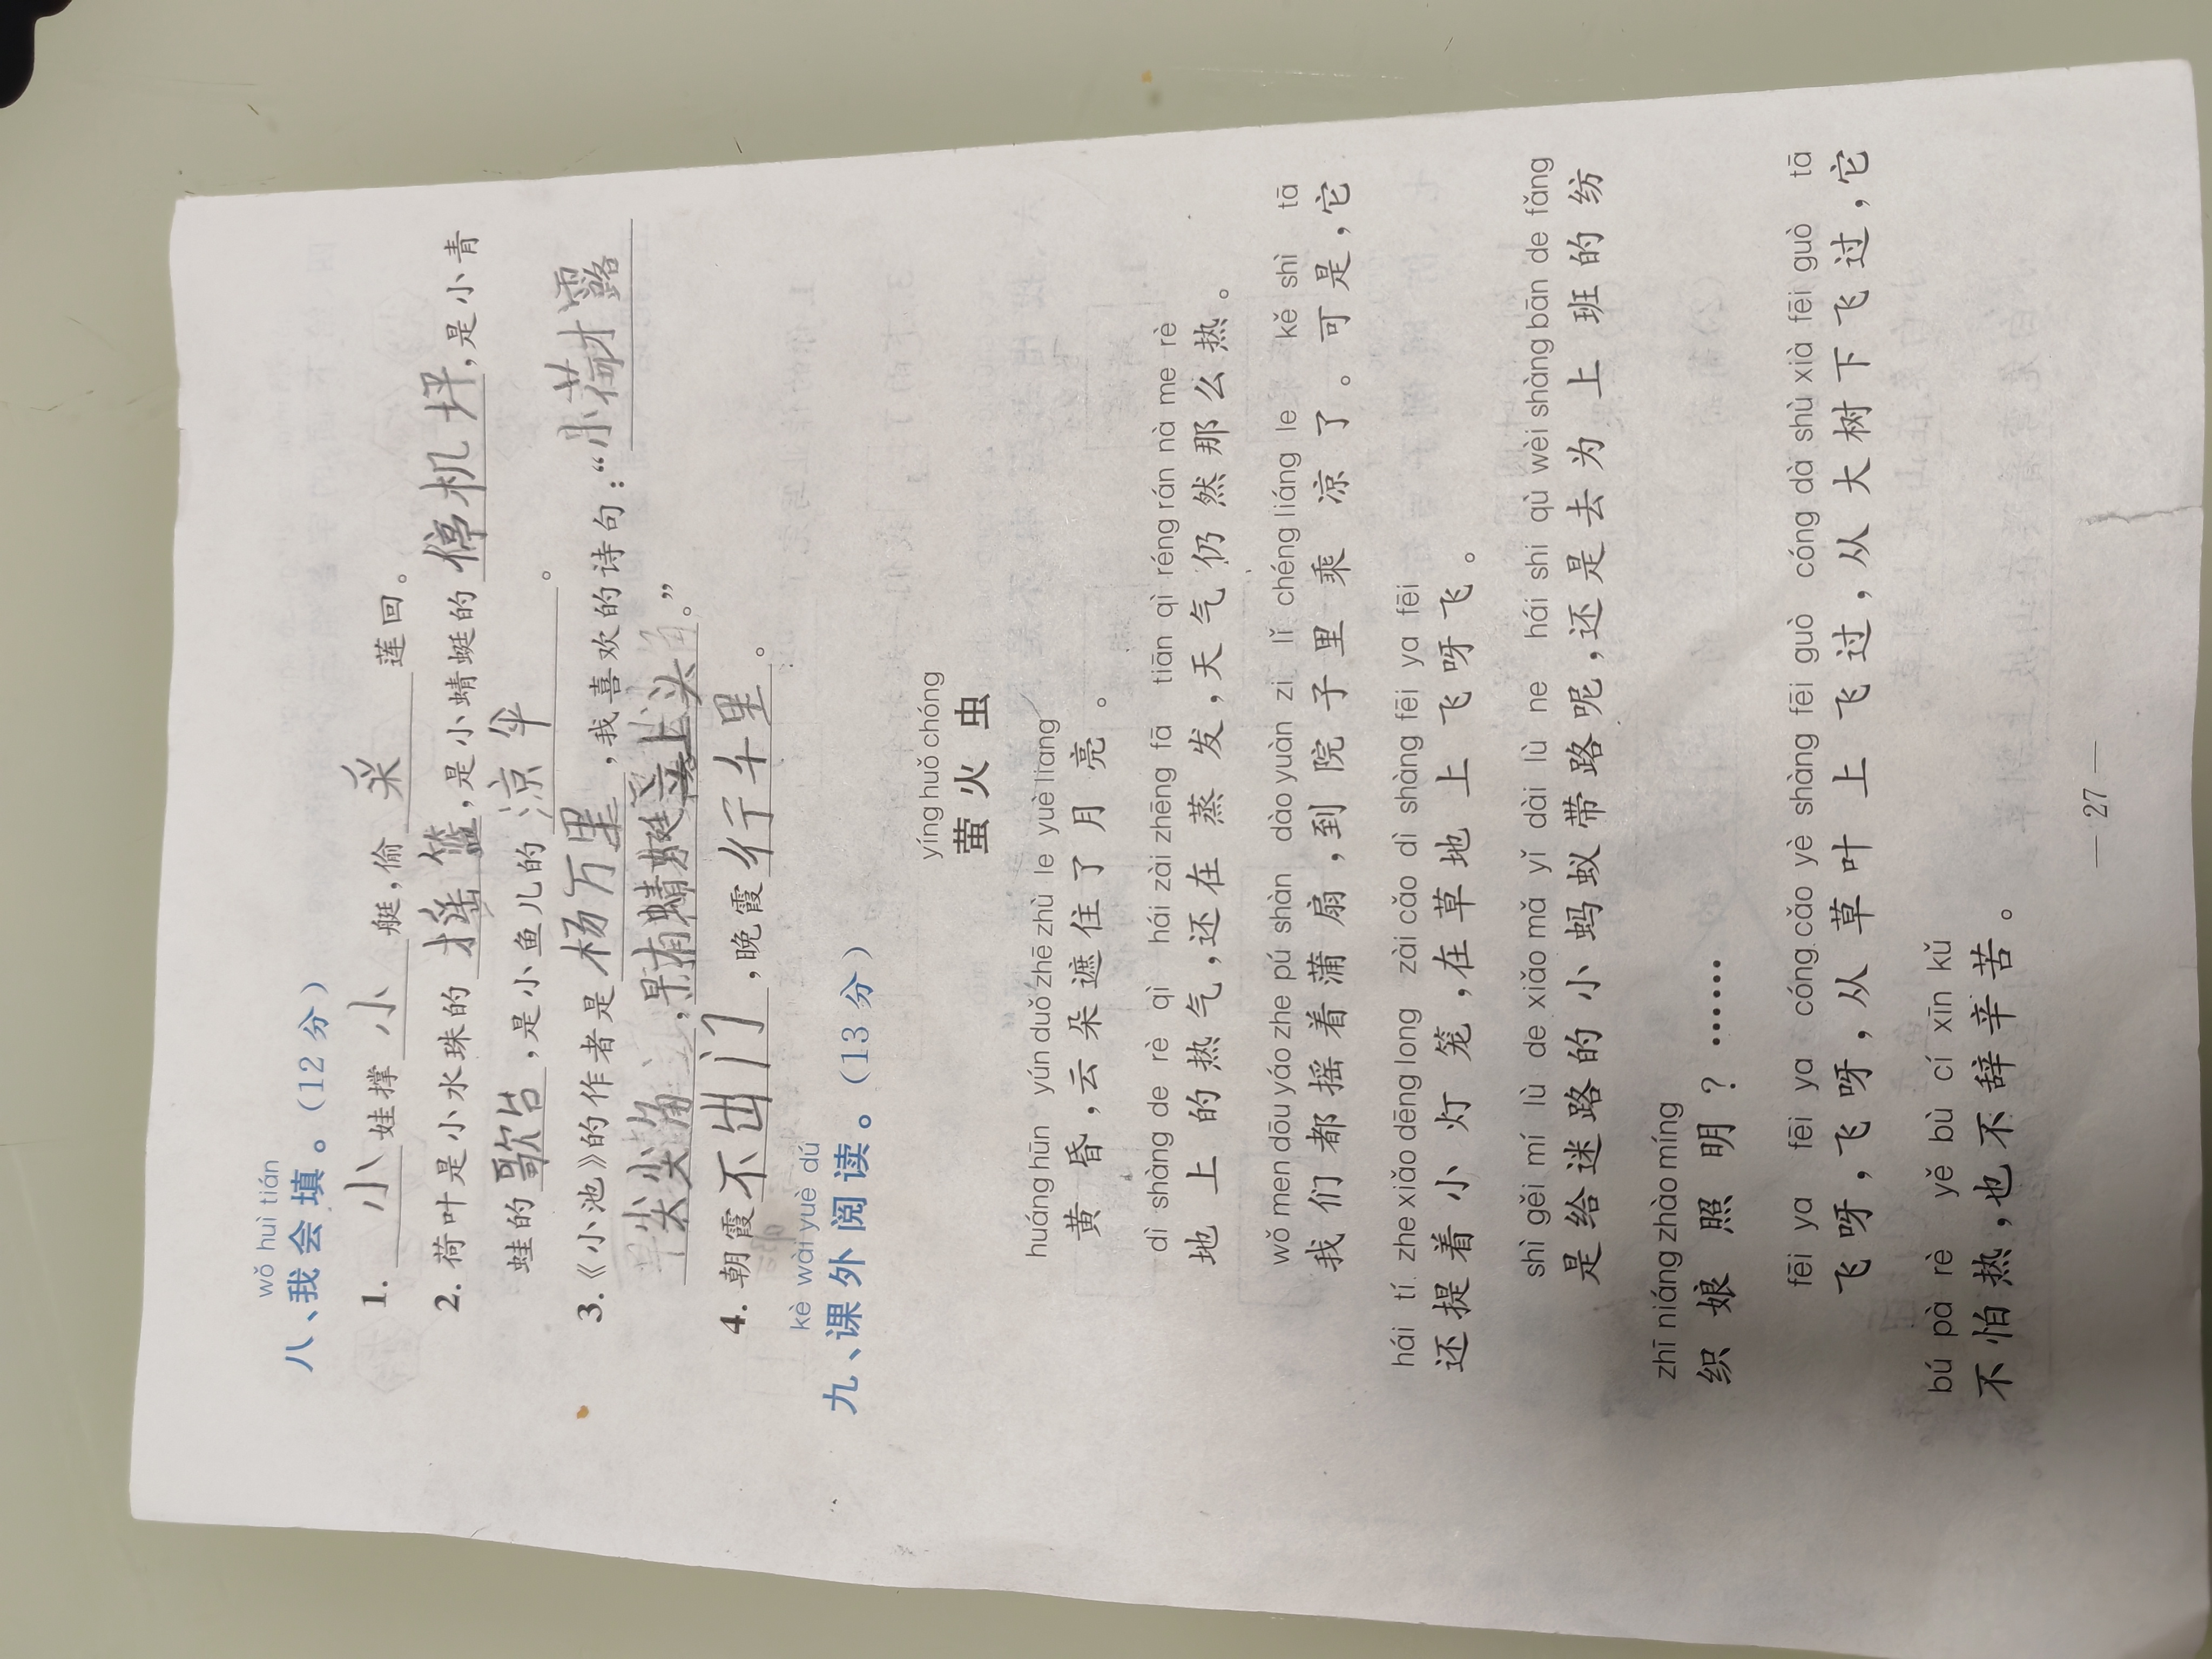 wǒ huì tián
八、我会填。(12分)
1. 小 娃撑 小 艇,偷 采 莲回。
2. 荷叶是小水珠的 摇篮 ,是小蜻蜓的 停机坪 ,是小青
蛙的 歌台 ,是小鱼儿的 凉伞 。
3.《小池》的作者是 杨万里 ,我喜欢的诗句:“小荷才露
尖尖角 ,早有蜻蜓立上头 。”
4. 朝霞 不出门 ,晚霞 行千里 。
kè wài yuè dú
九、课外阅读。(13分)
yíng huǒ chóng
萤火虫
huáng hūn yún duǒ zhē zhù le yuè liang
黄昏,云朵遮住了月亮。
dì shàng de rè qì hái zài zhēng fā tiān qì réng rán nà me rè
地上的热气,还在蒸发,天气仍然那么热。
wǒ men dōu yáo zhe pú shàn dào yuàn zi lǐ chéng liáng le kě shì tā
我们都摇着蒲扇,到院子里乘凉了。可是,它
hái tí zhe xiǎo dēng long zài cǎo dì shàng fēi ya fēi
还提着小灯笼,在草地上飞呀飞。
shì gěi mí lù de xiǎo mǎ yǐ dài lù ne hái shi qù wèi shàng bān de fǎng
是给迷路的小蚂蚁带路呢,还是去为上班的纺
zhī niáng zhào míng
织娘照明?……
fēi ya fēi ya cóng cǎo yè shàng fēi guò cóng dà shù xià fēi guò tā
飞呀,飞呀,从草叶上飞过,从大树下飞过,它
bú pà rè yě bù cí xīn kǔ
不怕热,也不辞辛苦。
— 27 —